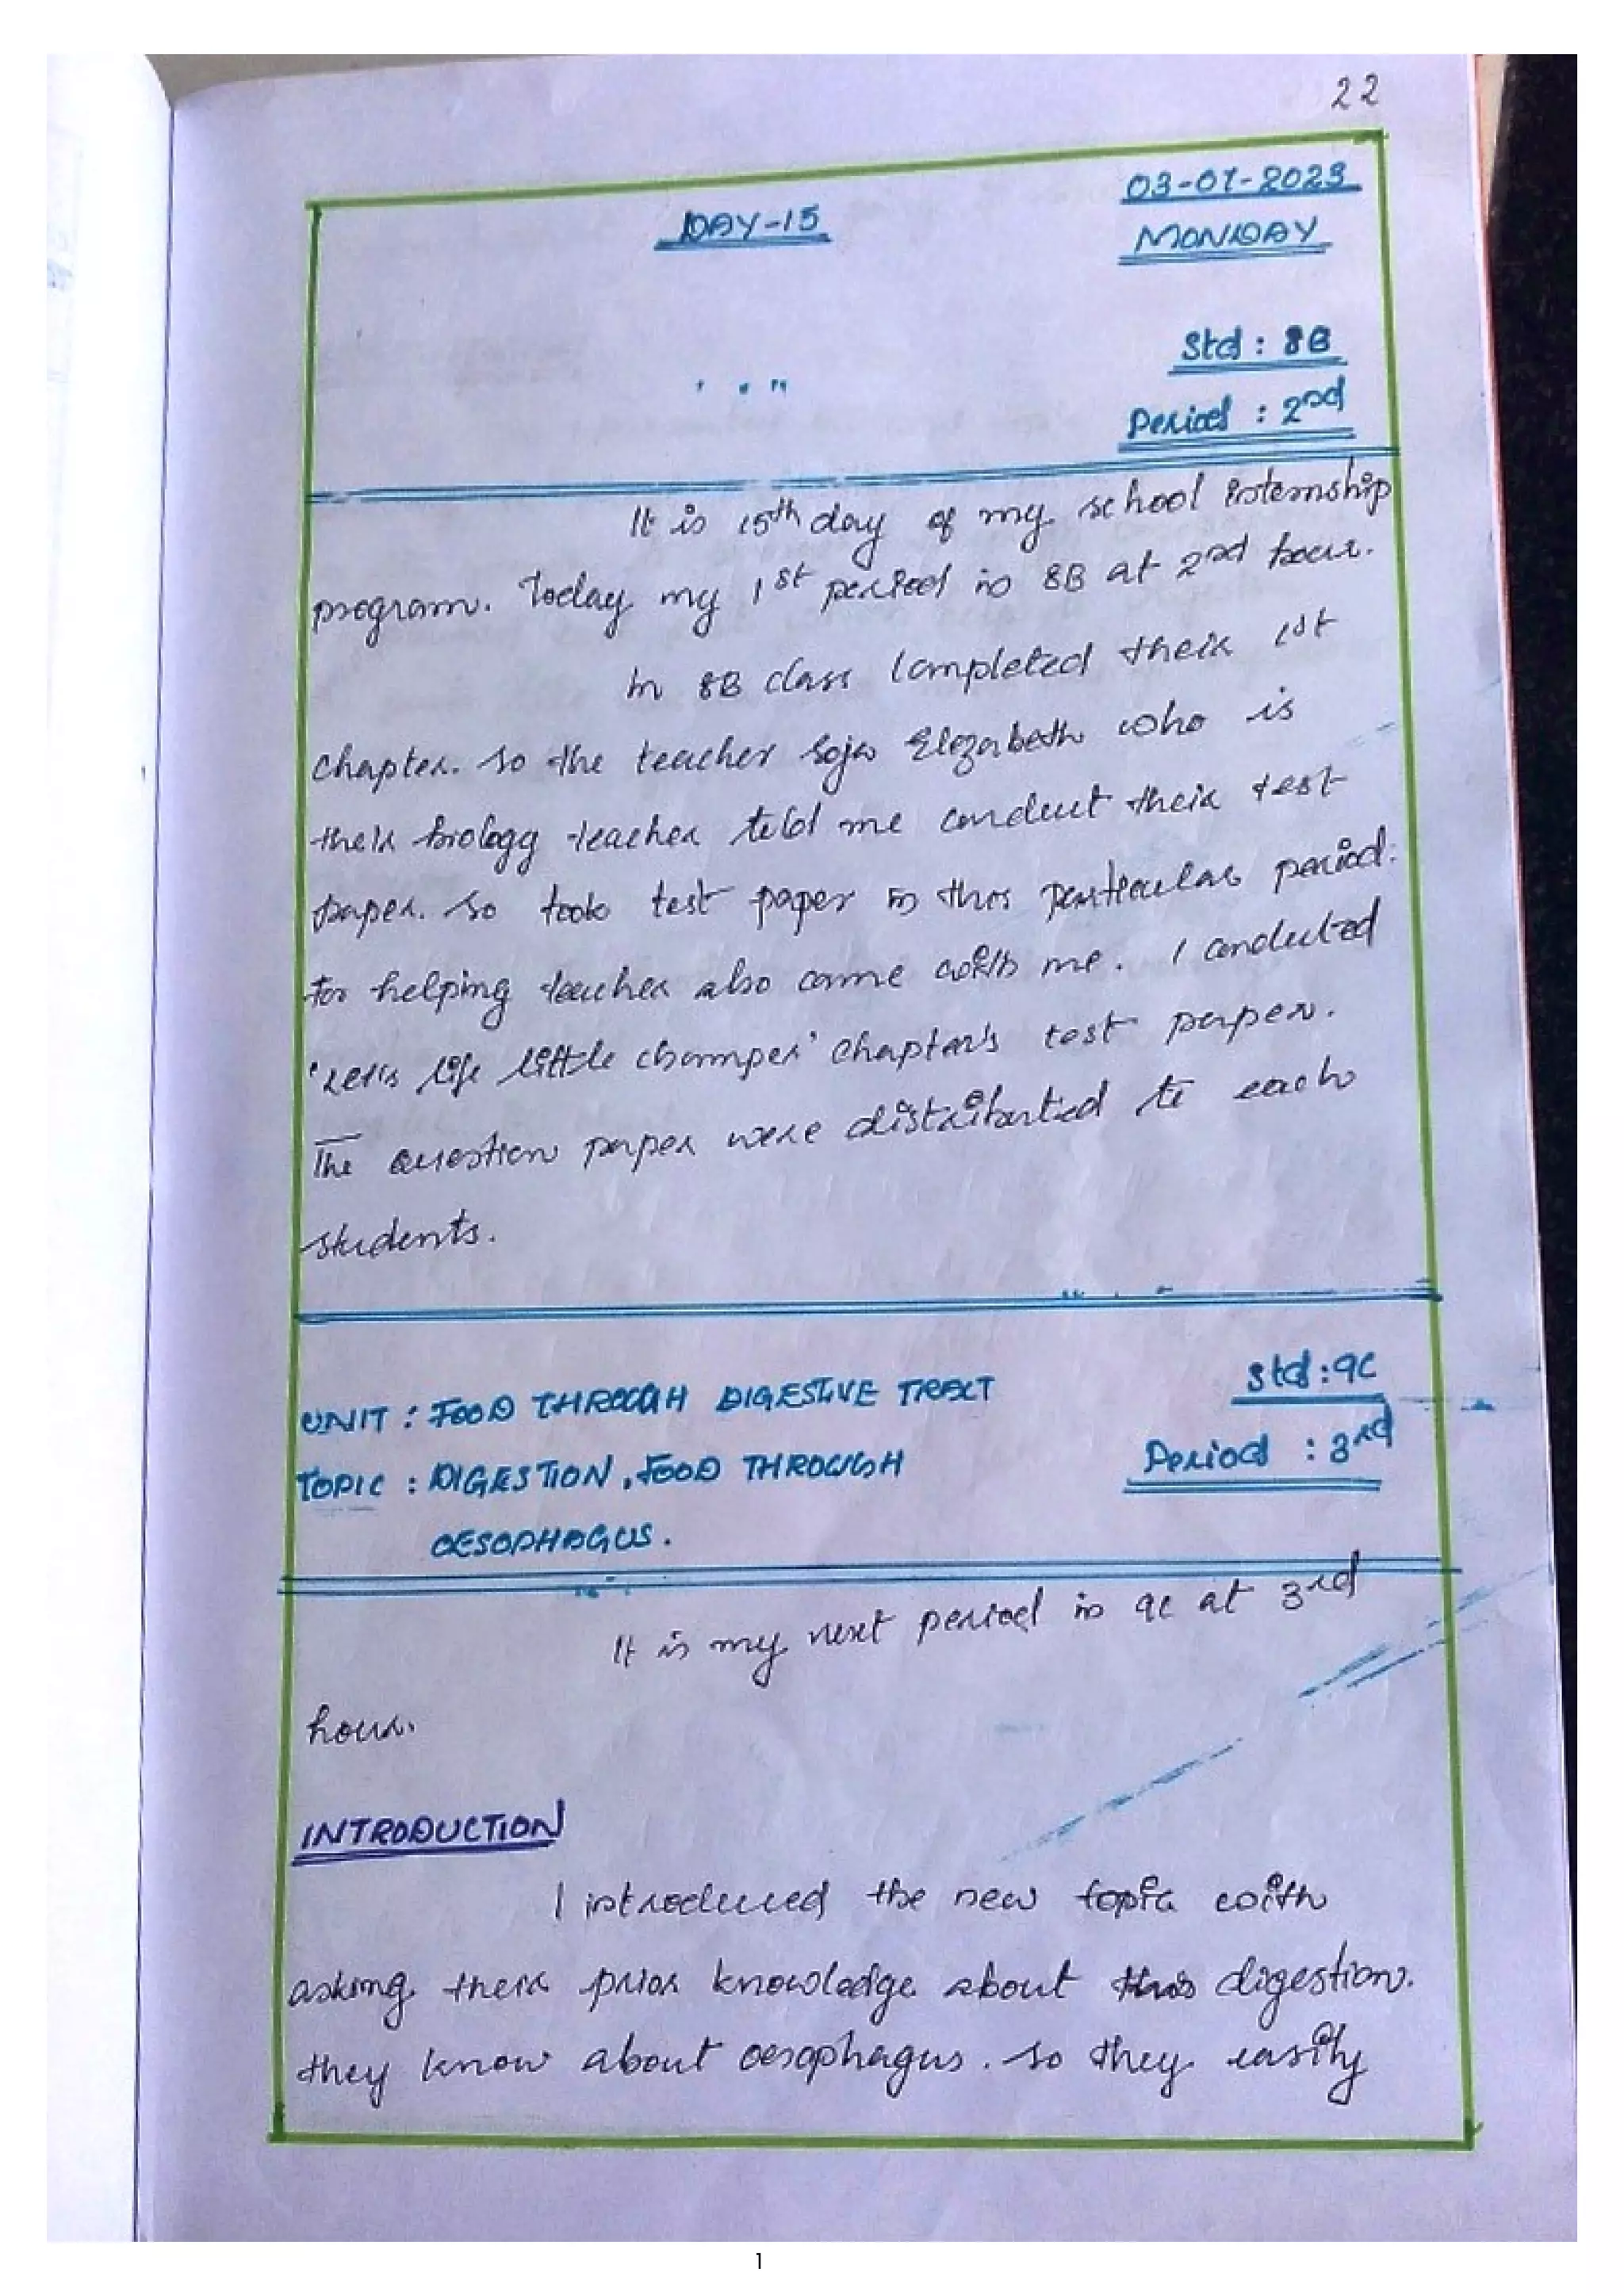 22
03-07-2023
DAY-15
MONDAY
Std : 8B
Period : 2nd
It is 15th day of my school internship
program. Today my 1st period is 8B at 2nd hour.
In 8B class completed their 1st
chapter. so the teacher Soja Elezabeth who is
their biology teacher told me conduct their test
paper. So took test paper in this particular period.
for helping teacher also came with me. I conducted
'Let's life little champer' chapter's test paper.
The question paper were distributed to each
students.
UNIT : FOOD THROUGH DIGESTIVE TRACT
Std : 9C
TOPIC : DIGESTION, FOOD THROUGH
Period : 3rd
OESOPHAGUS.
It is my next period is 9C at 3rd
hour.
INTRODUCTION
I introduced the new topic with
asking their prior knowledge about this digestion.
they know about oesophagus. So they easily
1